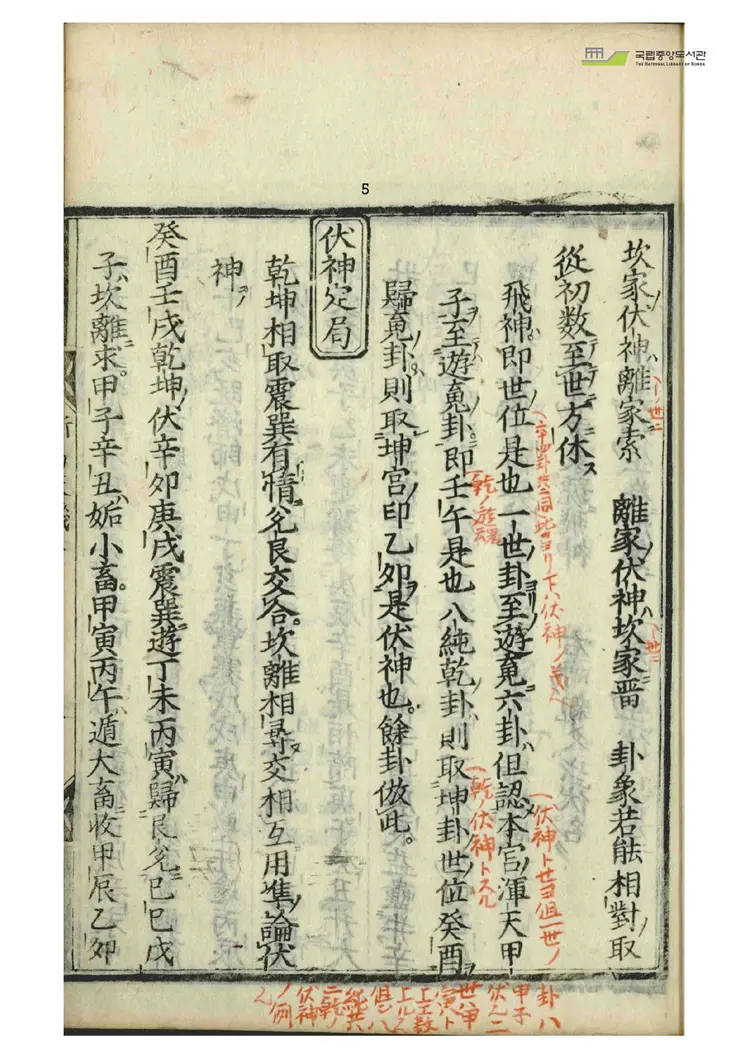 국립중앙도서관
THE NATIONAL LIBRARY OF KOREA
5
坎家伏神離家索 離家伏神坎家晋 卦象若能相對取
從初数至世方休
飛神即世位是也一世卦至遊䰟六卦但認本宮渾天甲
子至遊䰟卦即壬午是也八純乾卦則取坤卦世位癸酉
歸䰟卦則取坤宮印乙卯是伏神也餘卦倣此
伏神定局
乾坤相取震巽有情兊艮交合坎離相尋交相互用準論伏
神
癸酉壬戌乾坤伏辛卯庚戌震巽遊丁未丙寅歸艮兊巳巳戊
子坎離求甲子辛丑姤小畜甲寅丙午遁大畜收甲辰乙卯
乾ノ遊魂
乾ノ伏神トスル